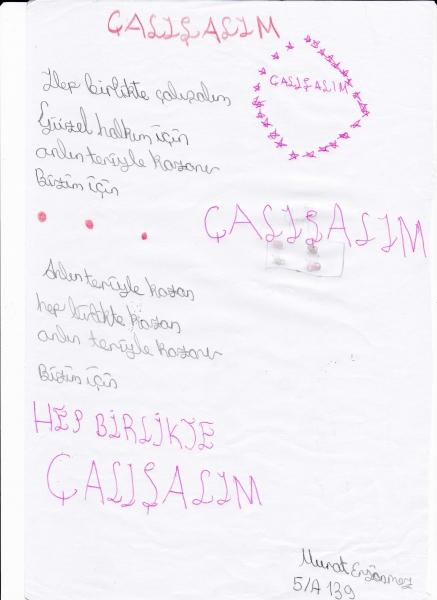 ÇALIŞALIM
ÇALIŞALIM
Hep birlikte çalışalım
Güzel halkım için
alın teriyle kazanır
Bizim için
ÇALIŞALIM
Alın teriyle kazan
hep birlikte kazan
alın teriyle kazanır
Bizim için
HEP BİRLİKTE
ÇALIŞALIM
Murat
5/A 139